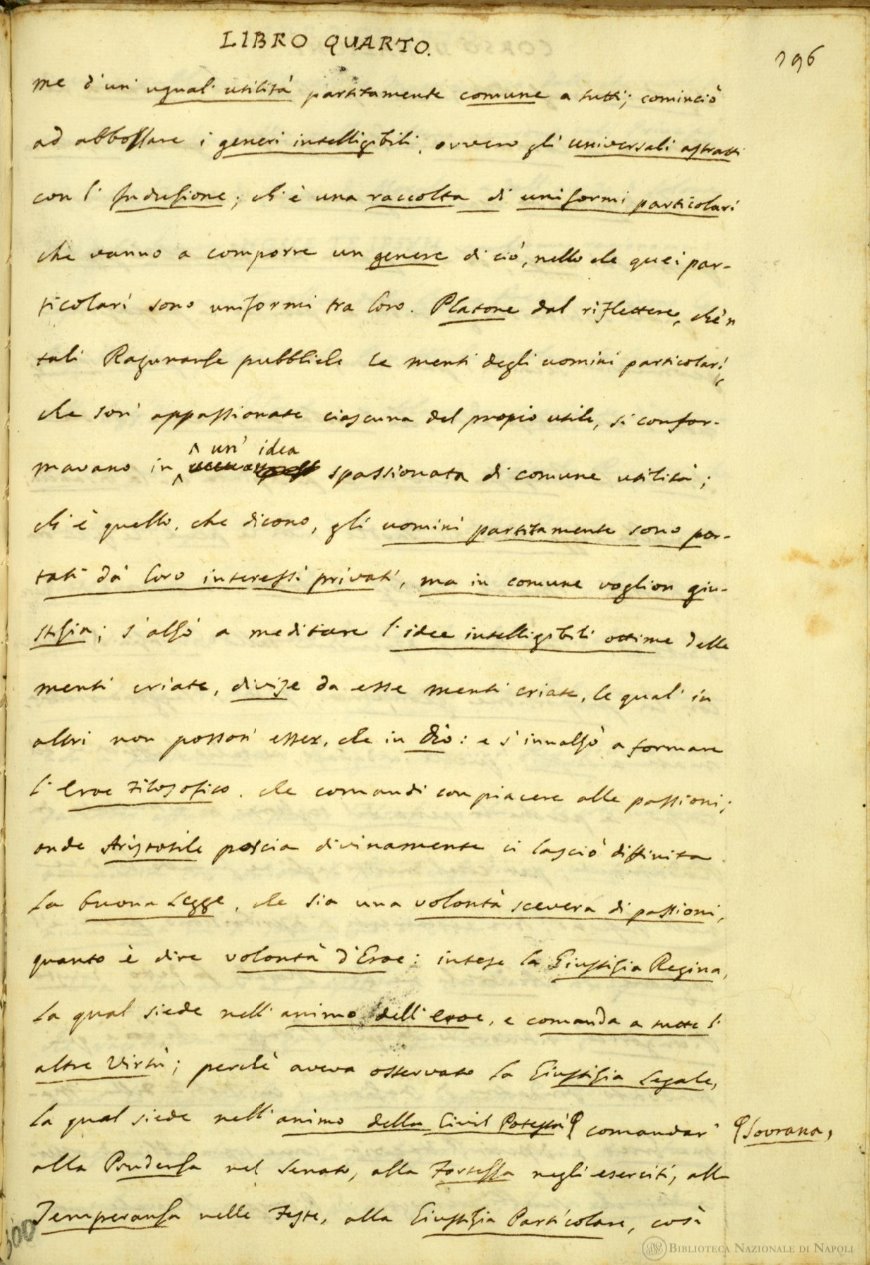 LIBRO QUARTO.
196
me d'un' ugual' utilità partitamente comune a tutti; cominciò
ad abbossare i generi intelligibili, ovvero gli universali astratti
con l' Induzione; ch'è una raccolta di uniformi particolari
che vanno a comporre un genere di ciò, nello che quei par-
ticolari sono uniformi tra loro. Platone dal riflettere, che'n
tali Ragunanze pubbliche le menti degli uomini particolari,
che son' appassionate ciascuna del propio utile, si confor-
mavano in un' idea spassionata di comune utilità;
ch'è quello, che dicono, gli uomini partitamente sono por-
tati da' loro interessi privati, ma in comune voglion giu-
stizia; s'alzò a meditare l'idee intelligibili ottime delle
menti criate, divise da esse menti criate, le qual' in
altri non posson' esser, che in Dio: e s'innalzò a formare
l'Eroe Filosofico, che comandi con piacere alle passioni;
onde Aristotile poscia divinamente ci lasciò diffinita
la buona Legge, che sia una volontà scevera di passioni,
quanto è dire volontà d'Eroe: intese la Giustizia Regina,
la qual siede nell'animo dell'eroe, e comanda a tutte l'
altre Virtù; perchè aveva osservato la Giustizia Legale,
la qual siede nell'animo della Civil Potestà comandar'
Sovrana,
alla Prudenza nel Senato, alla Fortezza negli eserciti, alla
Temperanza nelle Feste, alla Giustizia Particolare, così
300
BIBLIOTECA NAZIONALE DI NAPOLI